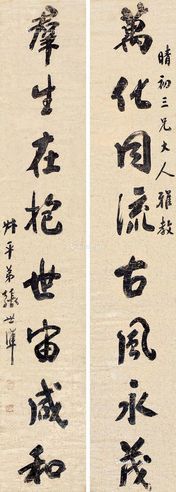 晴初三兄大人雅教
萬化同流古風永茂
羣生在抱世宙咸和
世準